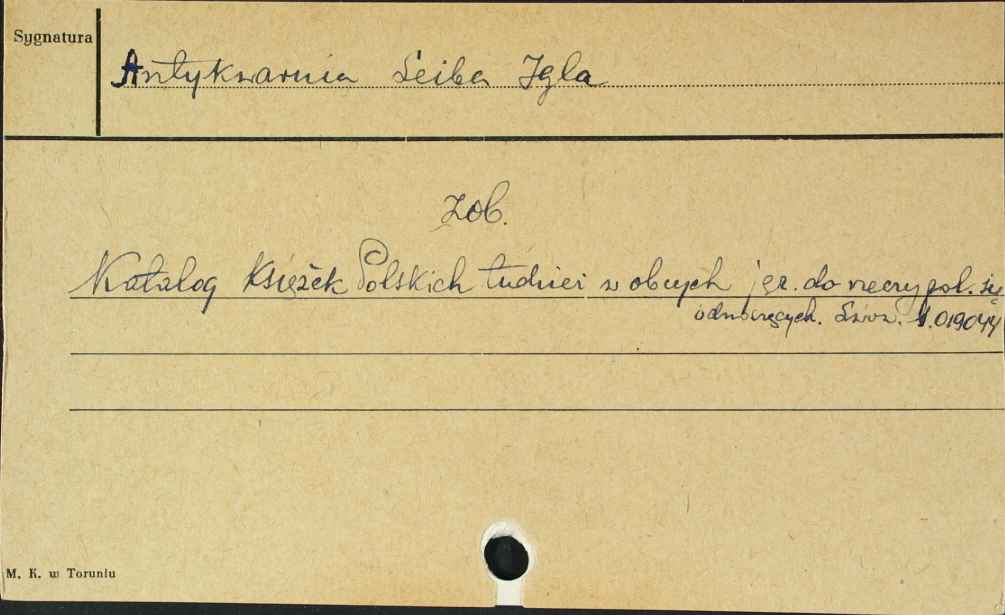 Sygnatura
Antykwarnia Leiba Igla
zob.
Katalog książek Polskich tudzież w obcych jęz. do rzeczy pol. się
odnoszących. Lwów. 019044
M. K. w Toruniu